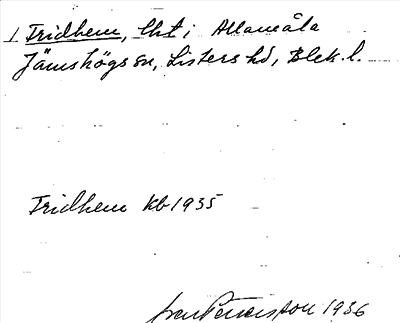 1 Fridhem, lht i Allamåla
Jämshögs sn, Listers hd, Blek. l.
Fridhem kb 1935
Pettersson 1936